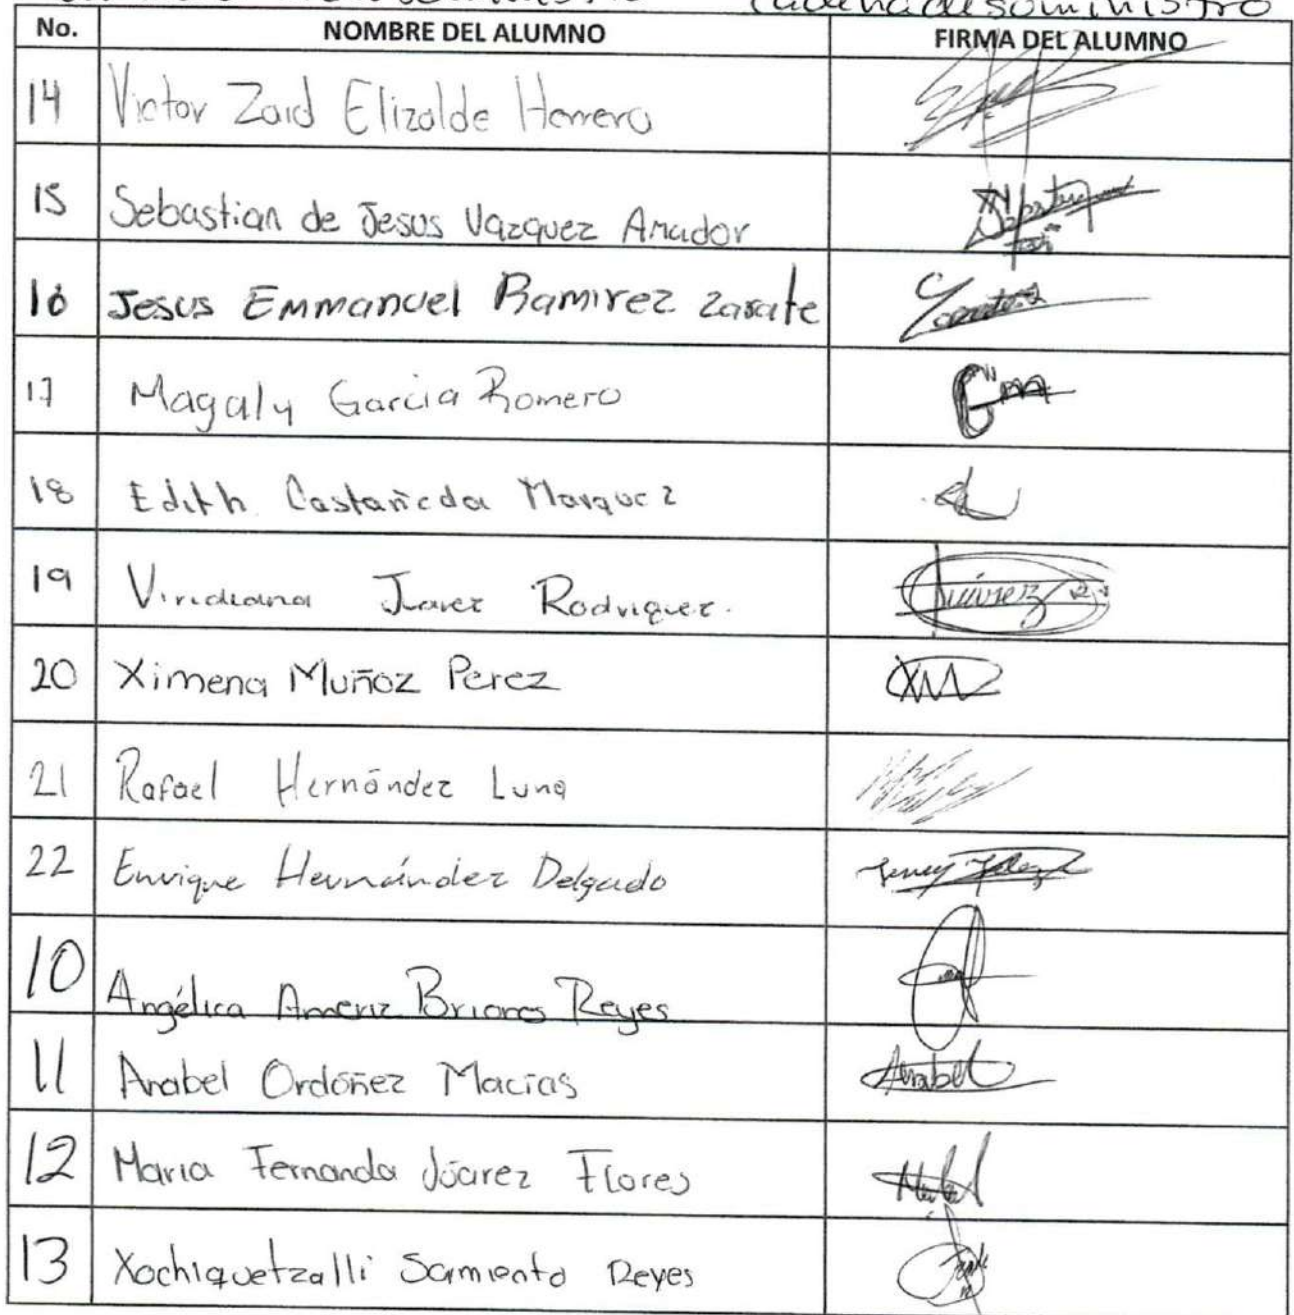 cadena de suministro
No. NOMBRE DEL ALUMNO FIRMA DEL ALUMNO
14 Victor Zaid Elizalde Herrera
15 Sebastian de Jesus Vazquez Amador
16 Jesus Emmanuel Ramirez Zarate
17 Magaly Garcia Romero
18 Edith Castañeda Marquez
19 Viridiana Juarez Rodriguez. Juárez
20 Ximena Muñoz Perez XM
21 Rafael Hernández Luna
22 Enrique Hernández Delgado
10 Angélica Ameriz Briones Reyes
11 Anabel Ordóñez Macías Anabel
12 Maria Fernanda Júarez Flores
13 Xochiquetzalli Sarmiento Reyes